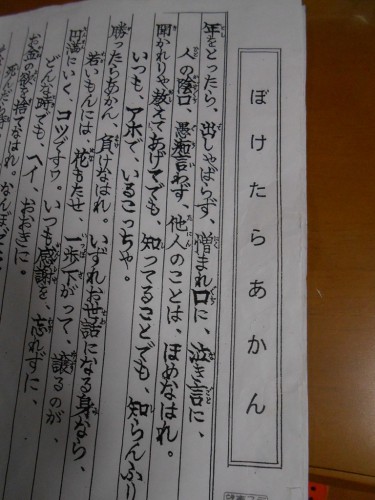 ぼけたらあかん
年をとったら、出しゃばらず、憎まれ口に、泣き言に、
人の陰口、愚痴言わず、他人のことは、ほめなはれ。
聞かれりゃ教えてあげてでも、知ってることでも、知らんふり
いつも、アホで、いるこっちゃ。
勝ったらあかん、負けなはれ。いずれお世話になる身なら、
若いもんには花もたせ、一歩下がって、譲るのが、
円満にいく、コツですワ。いつも感謝を忘れずに、
どんな時でも、ヘイ、おおきに。
お金の欲を捨てなはれ。なんぼ